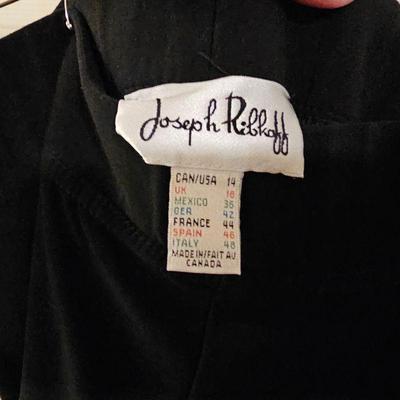 Joseph Ribkoff
CAN/USA 14
UK 16
MEXICO 36
GER 42
FRANCE 44
SPAIN 46
ITALY 48
MADE IN/FAIT AU
CANADA